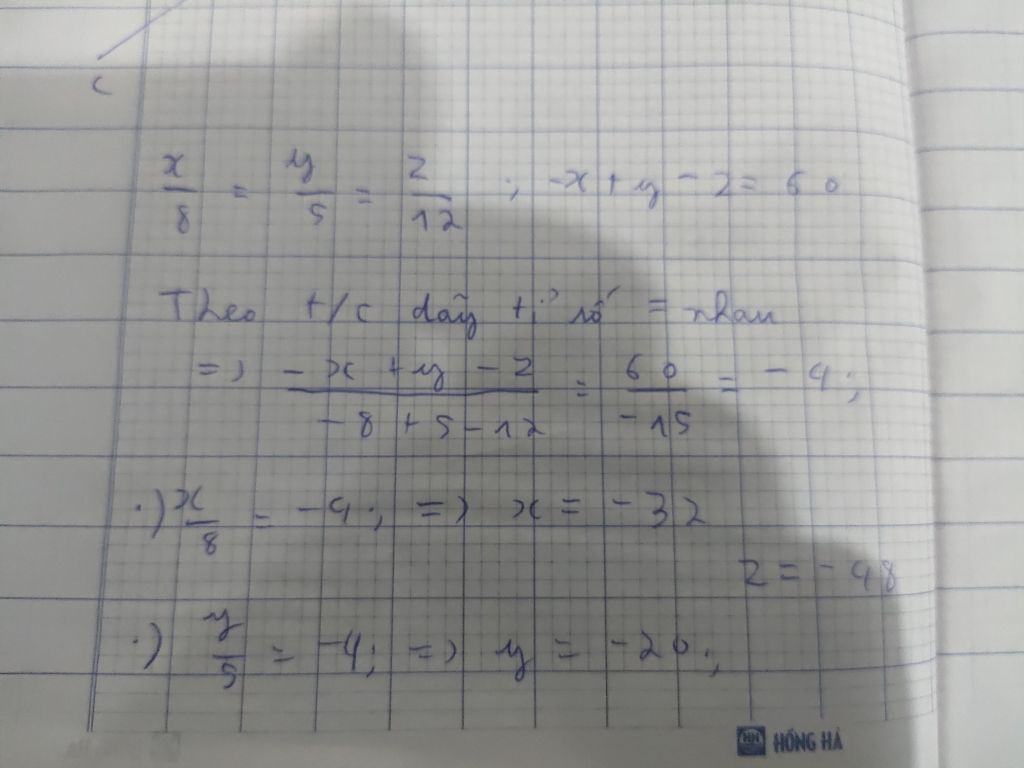 C
x/8 = y/5 = z/12 ; -x + y - z = 60
Theo t/c dãy tỉ số = nhau
=> (-x + y - z)/(-8 + 5 - 12) = 60/-15 = -4;
·) x/8 = -4; => x = -32
z = -48
·) y/5 = -4; => y = -20;
HỒNG HÀ